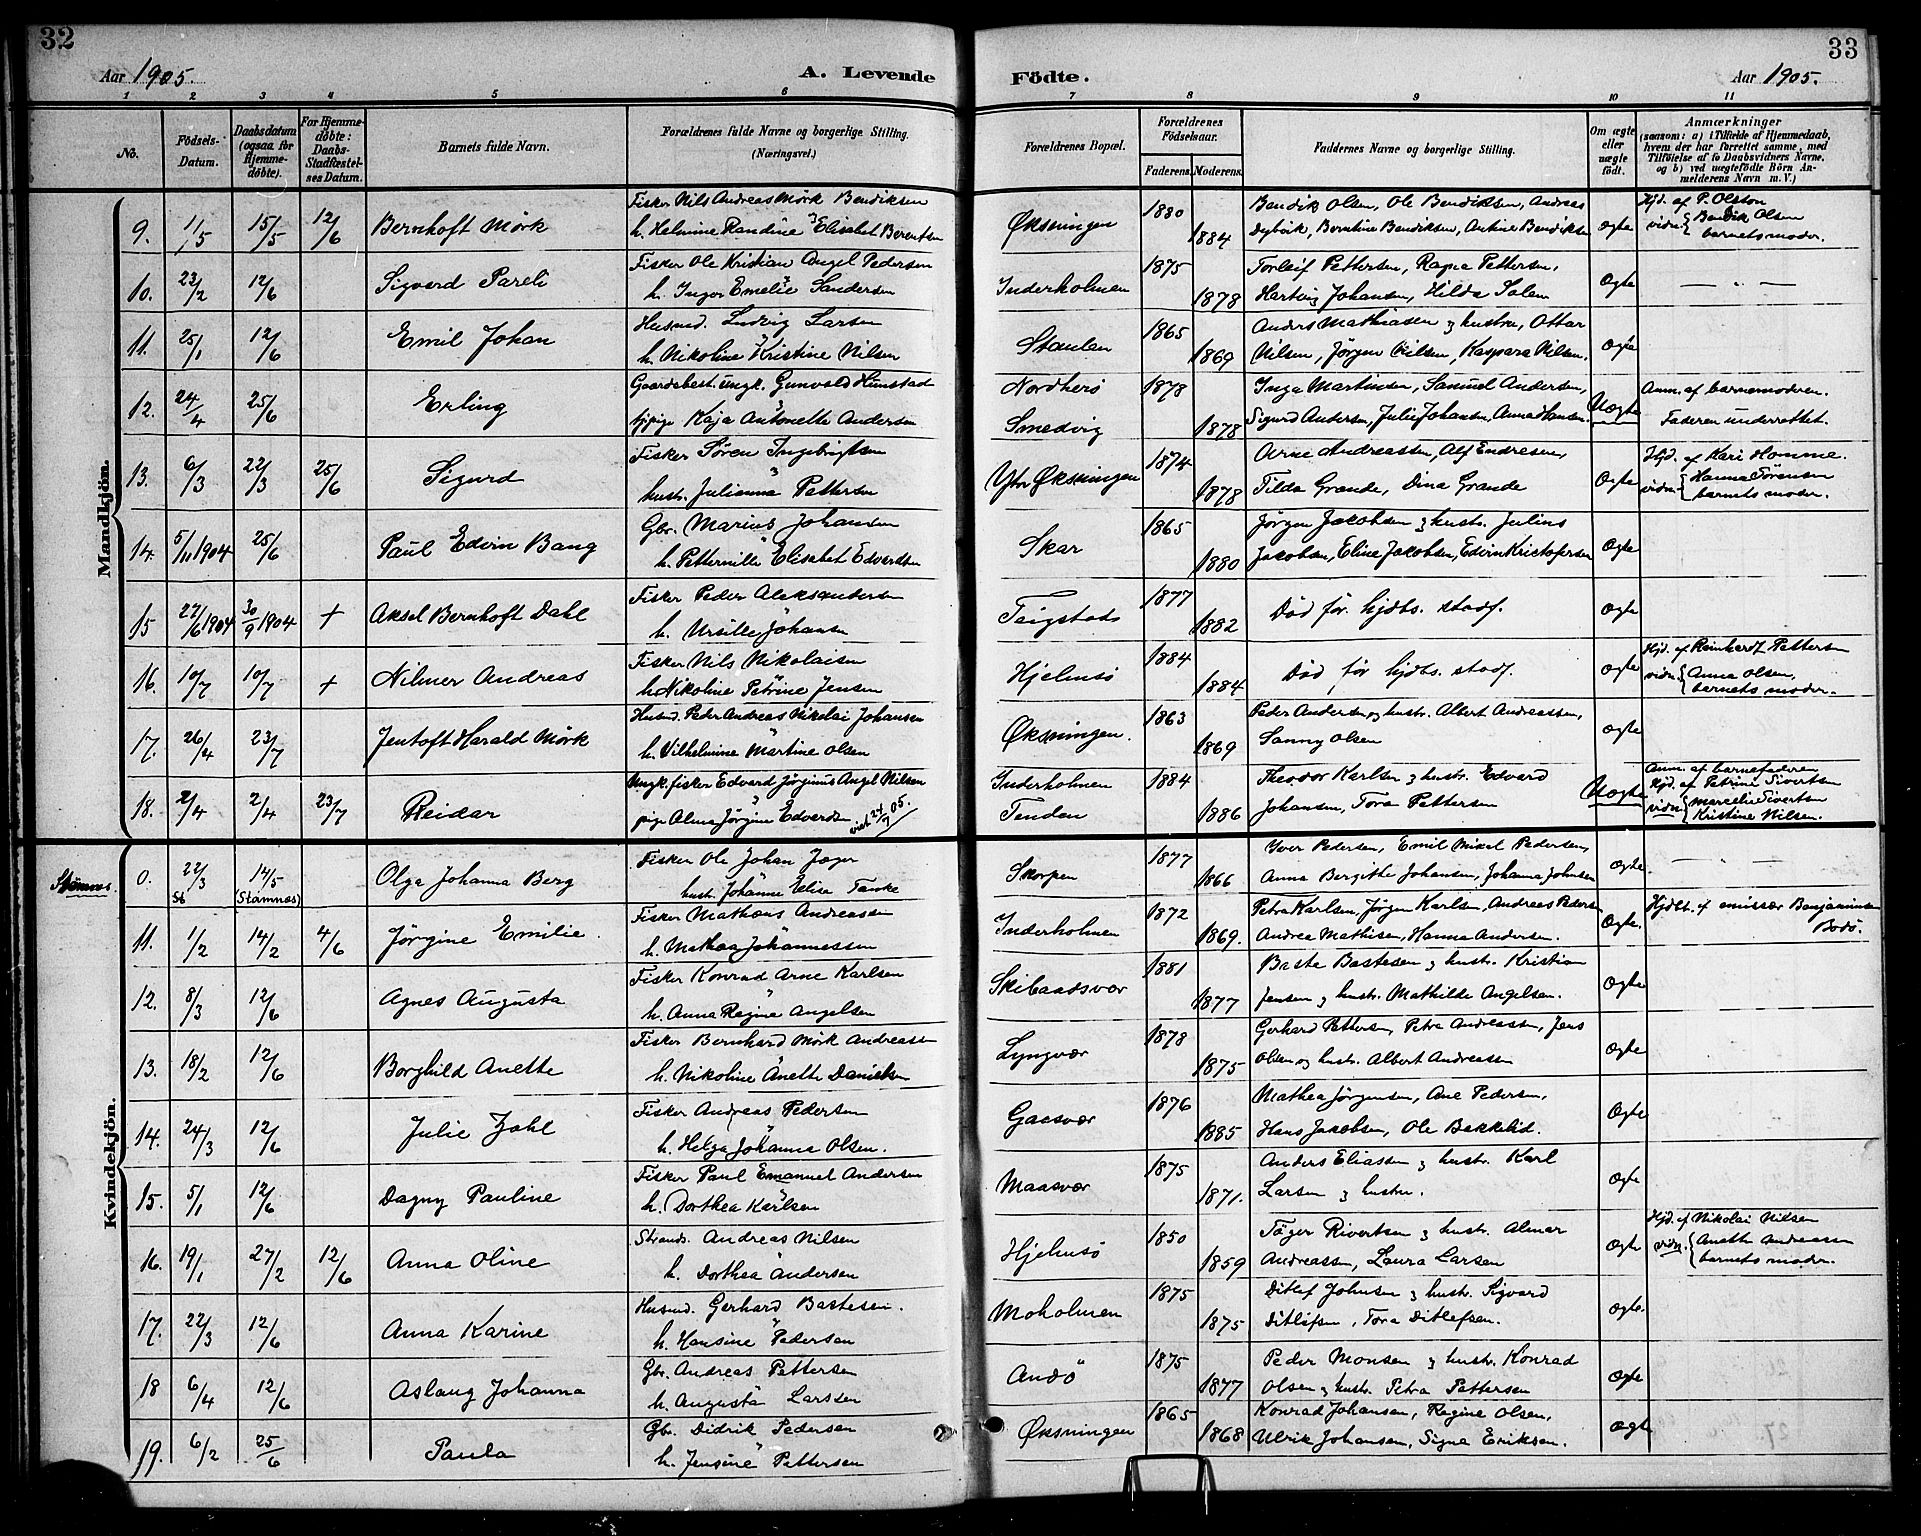 32
Aar 1905.
A. Levende
1 2 3 4 5 6
No.
Födsels-Datum.
Daabsdatum (ogsaa for Hjemme-döbte).
For Hjemme-döbte: Daabs-Stadfæstel-ses Datum.
Barnets fulde Navn.
Forældrenes fulde Navne og borgerlige Stilling. (Næringsvei.)
Mandkjön.
9. 11/5 15/5 12/6 Bernhoft Mörk
Fisker Nils Andreas Mörk Bendiksen
h. Helmine Randine Elisabet Berentsen
10. 23/2 12/6 Sigvard Pareli
Fisker Ole Kristian Angel Pedersen
h. Inger Emelie Sandersen
11. 25/1 12/6 Emil Johan
Husmd. Ludvig Larsen
h. Nikoline Kristine Nilsen
12. 24/4 25/6 Erling
Gaardbest. ungk. Gunvald Hunstad
tjpige Kaja Antonette Andersen
13. 6/3 22/3 25/6 Sigurd
Fisker Sören Ingebrigtsen
hustr. Julianna Pettersen
14. 5/11 1904 25/6 Paul Edvin Bang
Gbr. Marius Johansen
h. Petternille Elisabet Edvardsen
15 27/6 1904 30/9 1904 + Aksel Bernhoft Dahl
Fisker Peder Aleksandersen
h. Ursille Johansen
16. 10/7 10/7 + Nilmer Andreas
Fisker Nils Nikolaisen
h. Nikoline Petrine Jensen
17. 26/4 23/7 Jentoft Harald Mörk
Husmd. Peder Andreas Nikolai Johansen
h. Vilhelmine Martine Olsen
18. 2/4 2/4 23/7 Reidar
Ungk. fisker Edvard Jörginus Angel Nilsen
pige Alma Jörgine Edvardsen viet 24/7 05.
Kvindekjön.
Stamnes. 0. 22/3 St 14/5 (Stamnæs) Olga Johanna Berg
Fisker Ole Johan Jæger
hustr. Johanne Elisa Tanke
11. 1/2 14/2 4/6 Jörgine Emilie.
Fisker Mathæus Andreassen
h. Mathea Johannessen
12. 8/3 12/6 Agnes Augusta
Fisker Konrad Arne Karlsen
h. Anna Regine Angelsen
13. 18/2 12/6 Borghild Anette
Fisker Bernhard Mörk Andreassen
h. Nikoline Anette Danielsen
14. 24/3 12/6 Julie Zahl
Fisker Andreas Pedersen
h. Helga Johanna Olsen.
15. 5/1 12/6 Dagny Pauline
Fisker Paul Emanuel Andersen
h. Dorthea Karlsen
16. 19/1 27/2 12/6 Anna Oline
Strands. Andreas Nilsen
h. Dorthea Andersen
17. 22/3 12/6 Anna Karine
Husmd. Gerhard Bastesen.
h. Hansine Pedersen
18 6/4 12/6 Aslaug Johanna
Gbr. Andreas Pettersen
h. Augusta Larssen
19. 6/2 25/6 Paula
Gbr. Didrik Pedersen
h. Jensine Pettersen
33
Födte.
Aar 1905.
7 8 9 10 11
Forældrenes Bopæl.
Forældrenes Födselsaar.
Faderens. Moderens.
Faddernes Navne og borgerlige Stilling.
Om ægte eller uægte födt.
Anmærkninger
(saasom: a) i Tilfælde af Hjemmedaab, hvem der har forrettet samme, med Tilföielse af to Daabsvidners Navne, og b) ved uægtefödte Börn Anmelderens Navn m. V.)
Øksningen 1880 1884
Bendik Olsen, Ole Bendiksen, Andreas
Dybvik, Berntine Bendiksen, Antine Bendiksen
Ægte
Hjd. af P. Olston
vidn { Bendik Olsen
barnets moder.
Inderholmen 1875 1878
Torleif Pettersen, Ragna Pettersen,
Hartvig Johansen, Hilda Solem
Ægte
— „ —
Staulen 1865 1869
Anders Mathiasen & hustru, Ottar
Nilsen, Jörgen Nilsen, Kaspara Nilsen.
Ægte
Nordherö 1878
Smedvig 1878
Inga Martinsen, Samuel Andersen,
Sigurd Andersen, Julie Johansen, Anna Hansen
Uægte
Anm. af barnemoderen.
Faderen underrettet.
Ytre Øksningen 1874 1878
Arne Andreassen, Alf Endresen,
Tilda Grande, Dina Grande
Ægte
Hjd. af Kari Homme.
vidn { Hanna Sörensen
barnets moder.
Skar 1865 1880
Jörgen Jakobsen & hustr. Julius
Jakobsen, Eline Jakobsen, Edvin Kristofersen
Ægte
Teigstad 1877 1882
Död för hjdbs. stadf.
Ægte
Hjelmsö 1884 1884
Död för hjdbs. stadf.
Ægte
Hjd. af Reinherdt Pettersen
vidn { Anna Olsen,
barnets moder.
Øksningen. 1863 1869
Peder Andersen og hustr. Albert Andreassen,
Sanny Olsen
Ægte
Inderholmen 1884
Tenden 1886
Theodor Karlsen & hustr. Edvard
Johansen, Tora Pettersen
Uægte
Anm. af barnefaderen
Hjd. af Petrine Sivertsen
vidn { Marcelie Sivertsen
Kristine Nilsen.
Skorpen 1877 1866
Iver Pedersen, Emil Mikal Pedersen,
Anna Bergitte Johansen, Johanna Johnsen
Ægte
— „ —
Inderholmen 1872 1869.
Petra Karlsen, Jörgen Karlsen, Andreas Pedersen
Andrea Mathisen, Hanna Andersen.
Ægte.
Hjdbt. af emissær Benjaminsen
Bodö.
Skibaadsvær 1881 1877
Baste Bastesen & hustr. Kristian
Jensen & hustr. Mathilde Angelsen.
Ægte
Lyngvær 1878 1875
Gerhard Pettersen, Petra Andreassen, Jens
Olsen og hustr. Albert Andreassen
Ægte
Gaasvær 1876 1885
Mathea Jörgensen, Ane Pedersen,
Hans Jakobsen, Ole Bakkelid.
Ægte
Maasvær 1875 1871.
Anders Eliassen & hustr. Karl
Larsen & hustru.
Ægte
Hjelmsö 1850 1859
Töger Rivertsen & hustr. Almar
Andreassen, Laura Larsen
Ægte
Hjd. af Nikolai Nilsen
vidn. { Anette Andreassen
barnets moder.
Moholmen 1875 1875
Ditlef Johnsen & hustr. Sigvard
Ditlefsen, Tora Ditlefsen.
Ægte.
Andö 1875 1877
Peder Monsen & hustr. Konrad
Olsen & hustr. Petra Pettersen
Ægte
Øksningen 1865 1868
Konrad Johansen, Regine Olsen,
Ulrik Johansen, Signe Eriksen.
Ægte